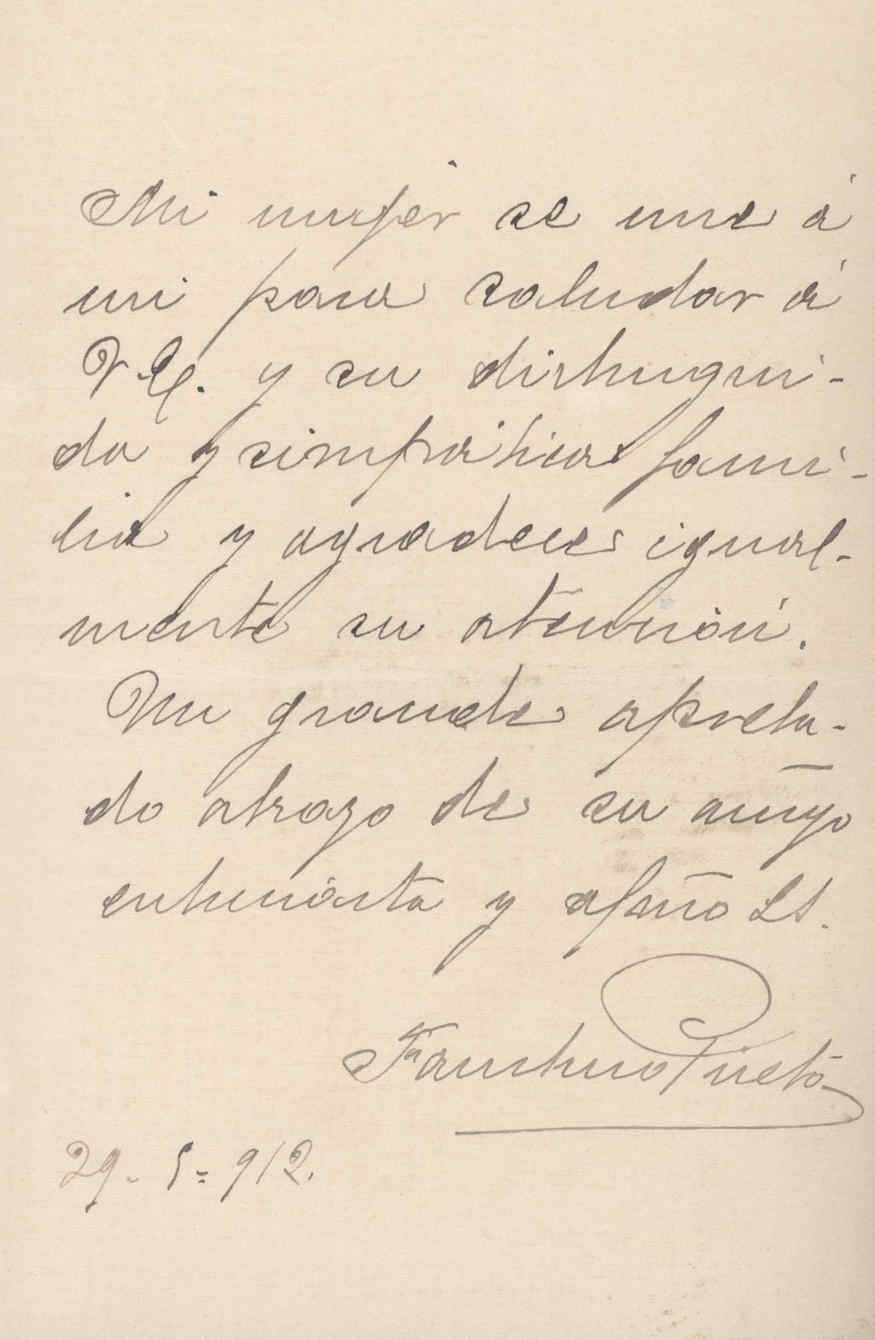 Mi mujer se une á
mi para saludar á
V.E. y su distingui-
da y simpática fami-
lia y agradece igual-
mente su atención.
Un grande apreta-
do abrazo de su amigo
entusiasta y afmo SS.
Faustino Prieto
29-5=912.